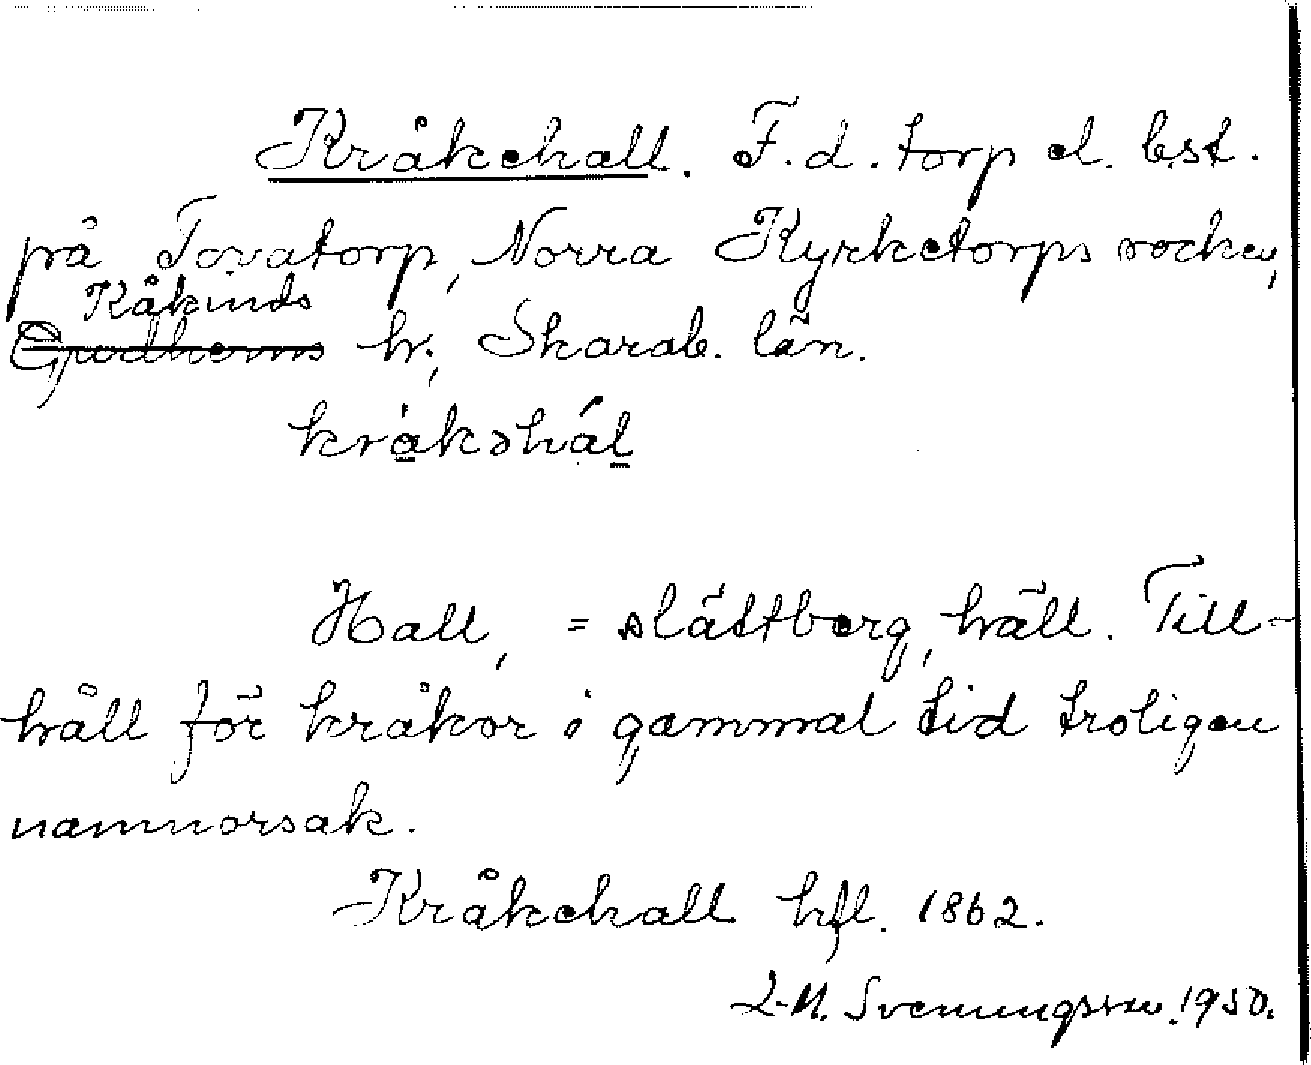 Kråkehall. F.d. torp el. bst.
på Tovatorp, Norra Kyrketorps socken,
Kåkinds
Gudhems hr, Skarab. län.
kråkəhál
Hall, = slättberg, häll. Till-
håll för kråkor i gammal tid troligen
namnorsak.
Kråkehall hfl. 1862.
L-M. Svenungsson. 1950.